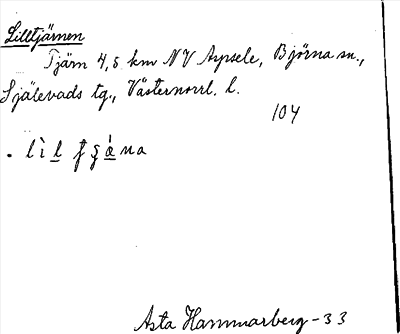 Lilltjärnen
Tjärn 4,5 km NV Aspsele, Björna sn.,
Själevads tg., Västernorrl. l.
104
Asta Hammarberg - 33